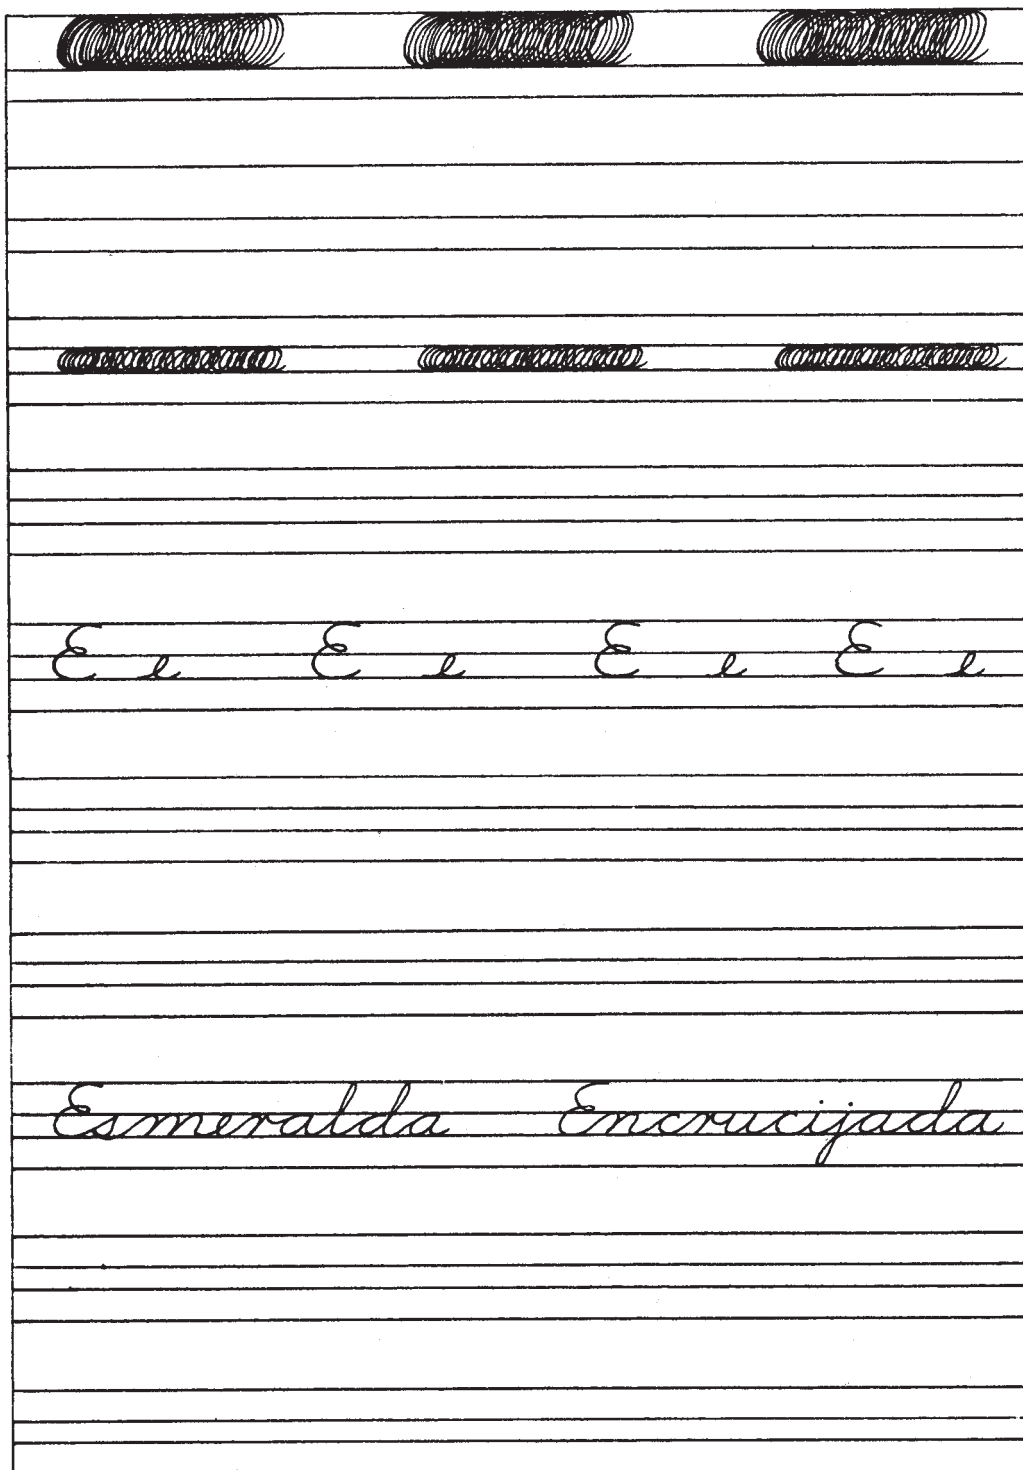 E e E e E e E e
Esmeralda Encrucijada